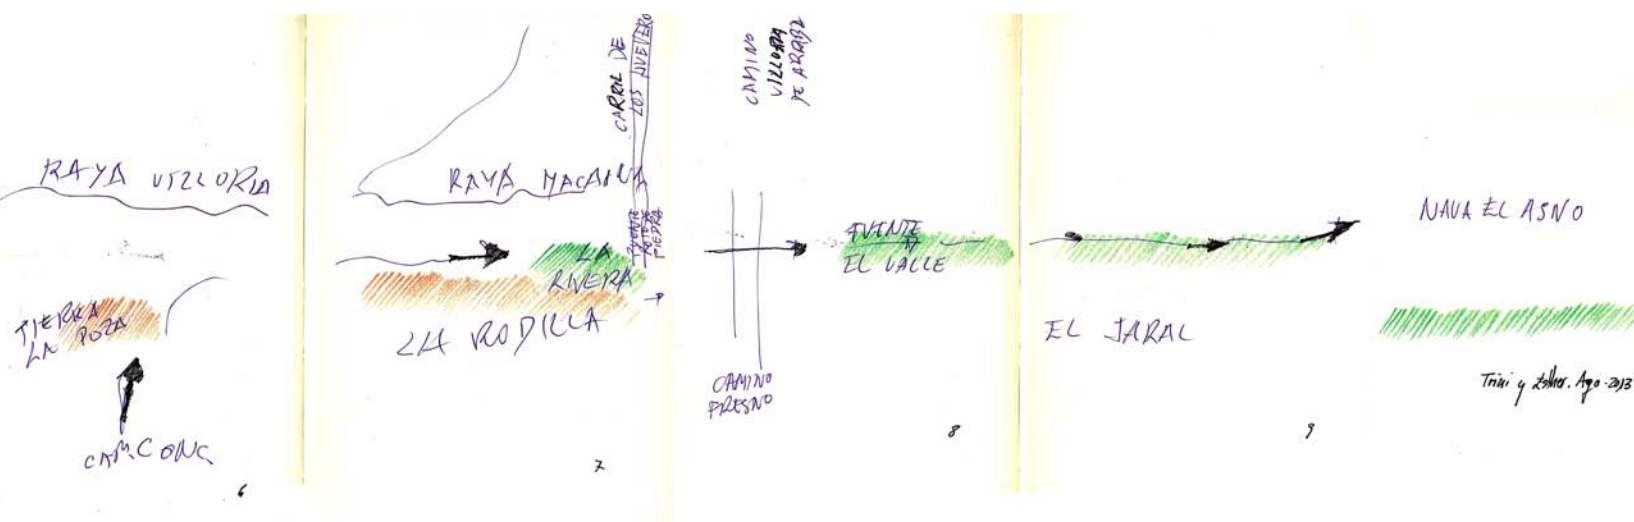 RAYA VILLORIA
TIERRA
LA POZA
CAM. CONC
6
CARRIL DE
LOS NUEVEROS
RAYA MACA
PUENTE
PIEDRA
LA
RIVERA
LA RODILLA
7
CAMINO
VILLORIA
DE ARABA
FUENTE
EL VALLE
CAMINO
FRESNO
8
EL JARAL
9
NAVA EL ASNO
Trini y Esther. Ago-2013